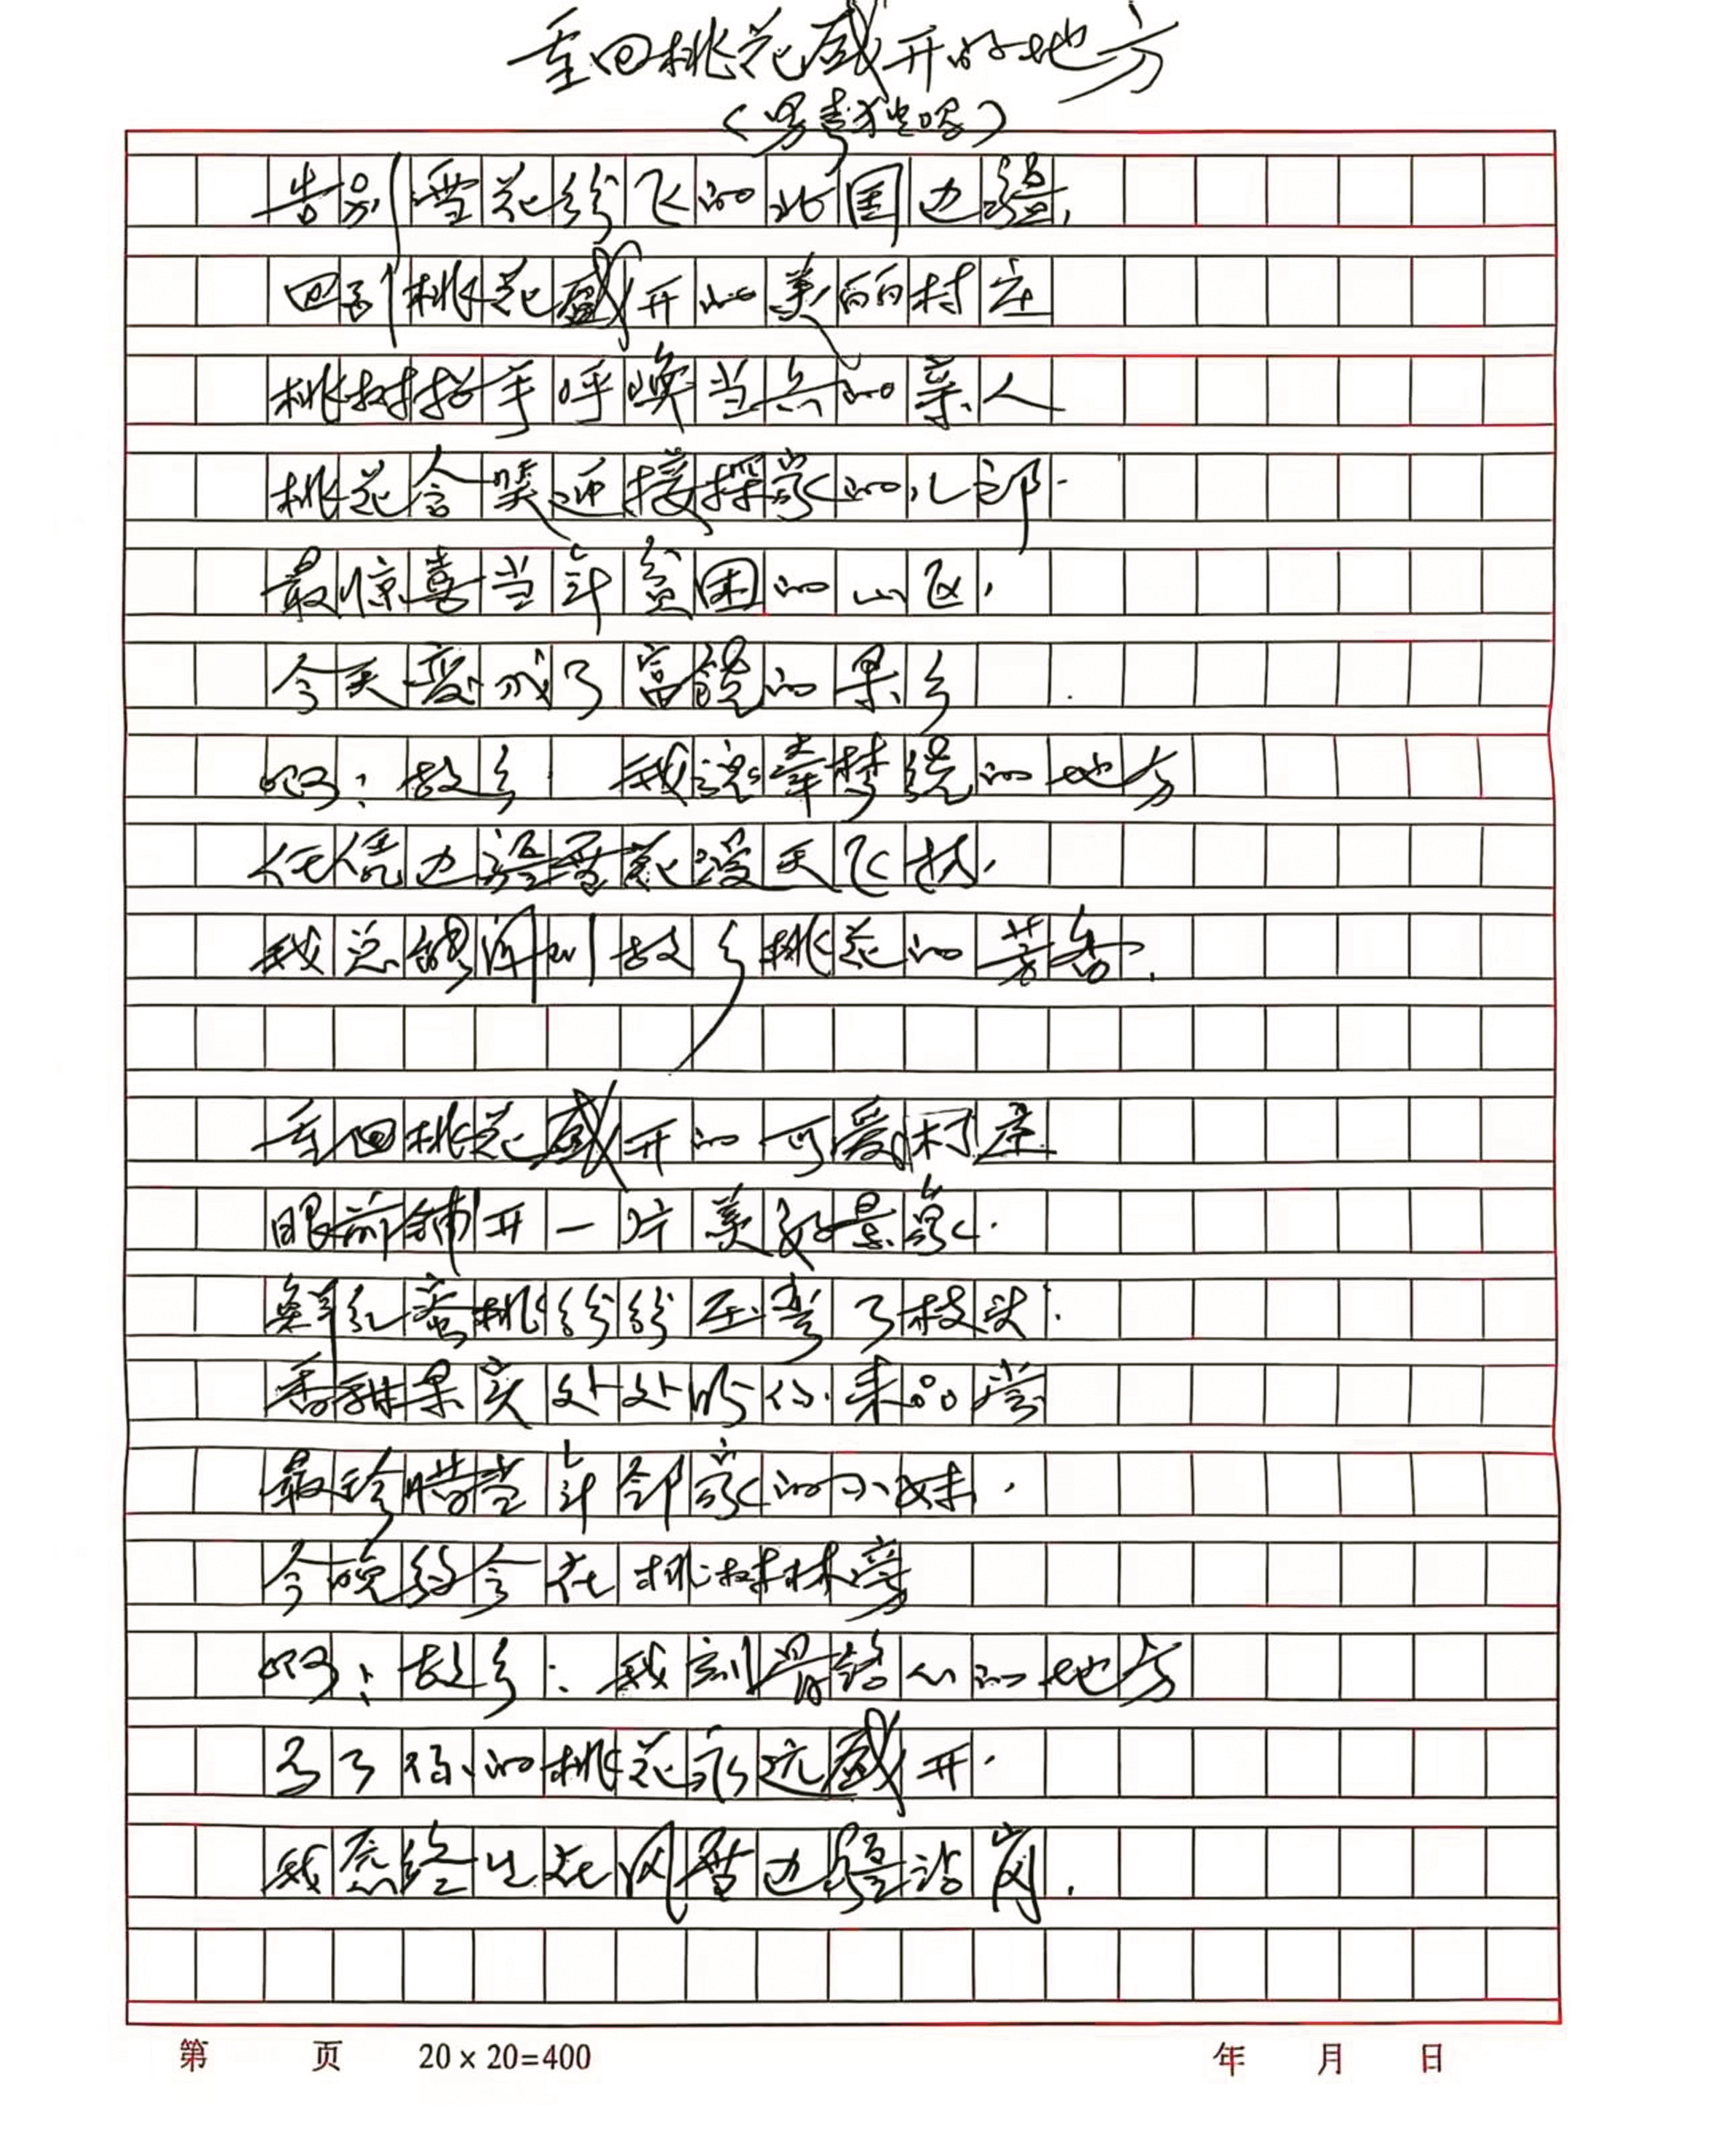 重回桃花盛开的地方
（男声独唱）
告别雪花纷飞的北国边疆，
回到桃花盛开的美丽村庄
桃树招手呼唤当兵的亲人
桃花含笑迎接探家的儿郎.
最惊喜当年贫困的山区，
今天变成了富饶的果乡
啊；故乡 我魂牵梦绕的地方
任凭边疆雪花漫天飞扬，
我总能闻到故乡桃花的芳香.
重回桃花盛开的可爱村庄
眼前铺开一片美好景象.
鲜红蜜桃纷纷压弯了枝头.
香甜果实处处盼你来品尝
最珍惜当年邻家的小妹，
今晚约会在桃树林旁
啊；故乡：我刻骨铭心的地方
为了你的桃花永远盛开.
我愿终生在风雪边疆站岗.
第 页 20×20=400 年 月 日